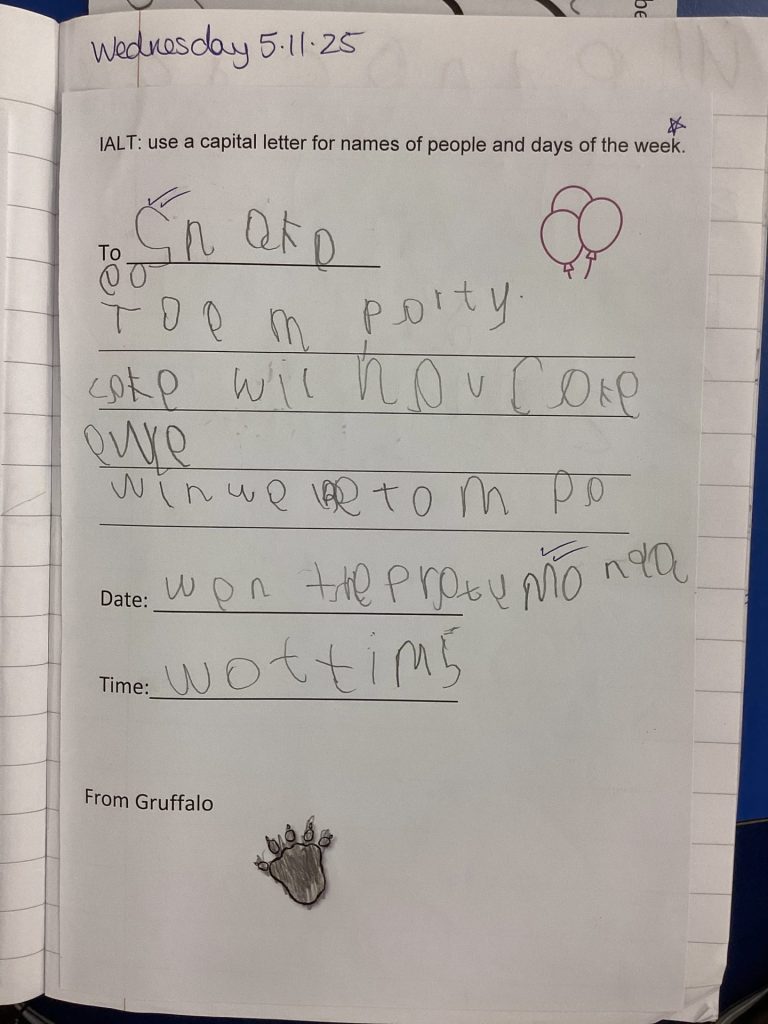 Wednesday 5.11.25
IALT: use a capital letter for names of people and days of the week.
To Sn ake
To e m porty.
coke wil hav Coke
ewe
win we to m po
Date: wen the Mo nda
Time: wot tim 5
From Gruffalo